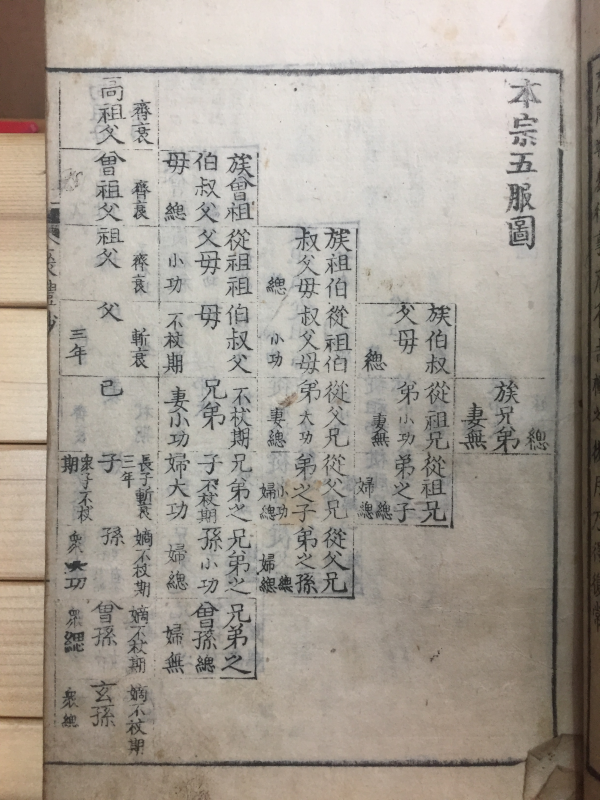 本宗五服圖
族兄弟
緦
妻無
族伯叔
父母
緦
從祖兄
弟小功
妻無
從祖兄
弟之子
緦
婦緦
族祖伯
叔父母
緦
從祖伯
叔父母
小功
從父兄
弟大功
妻緦
從父兄
弟之子
小功
婦緦
從父兄
弟之孫
緦
婦緦
族曾祖
伯叔父
母緦
從祖祖
父母
小功
伯叔父
母
不杖期
不杖期
兄弟
妻小功
兄弟之
子不杖期
婦大功
兄弟之
孫小功
婦緦
兄弟之
曾孫緦
婦無
齊衰
高祖父
齊衰
曾祖父
齊衰
祖父
斬衰
父
三年
己
長子斬衰
三年
子
衆子不杖
期
嫡不杖期
孫
衆大功
嫡不杖期
曾孫
衆緦
嫡不杖期
玄孫
衆緦